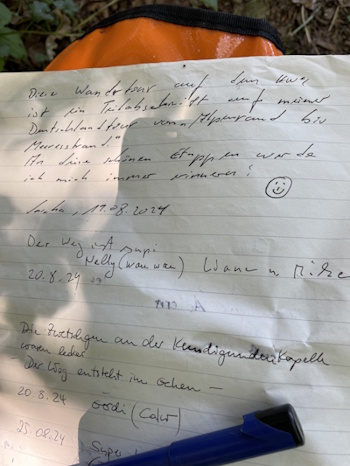 Diese Wandertour auf dem HW2
ist ein Teilabschnitt auf meiner
Deutschlandtour von "Alpenrand bis
Meeresstrand"
An diese schönen Etappen werde
ich mich immer erinnern!
19.08.2024
Der Weg ist supi
Nelly (wau wau)
20.8.24
Die Zwetschgen an der Kunigundenkapelle
waren lecker
- Der Weg entsteht im Gehen -
20.8.24
25.08.24 Super